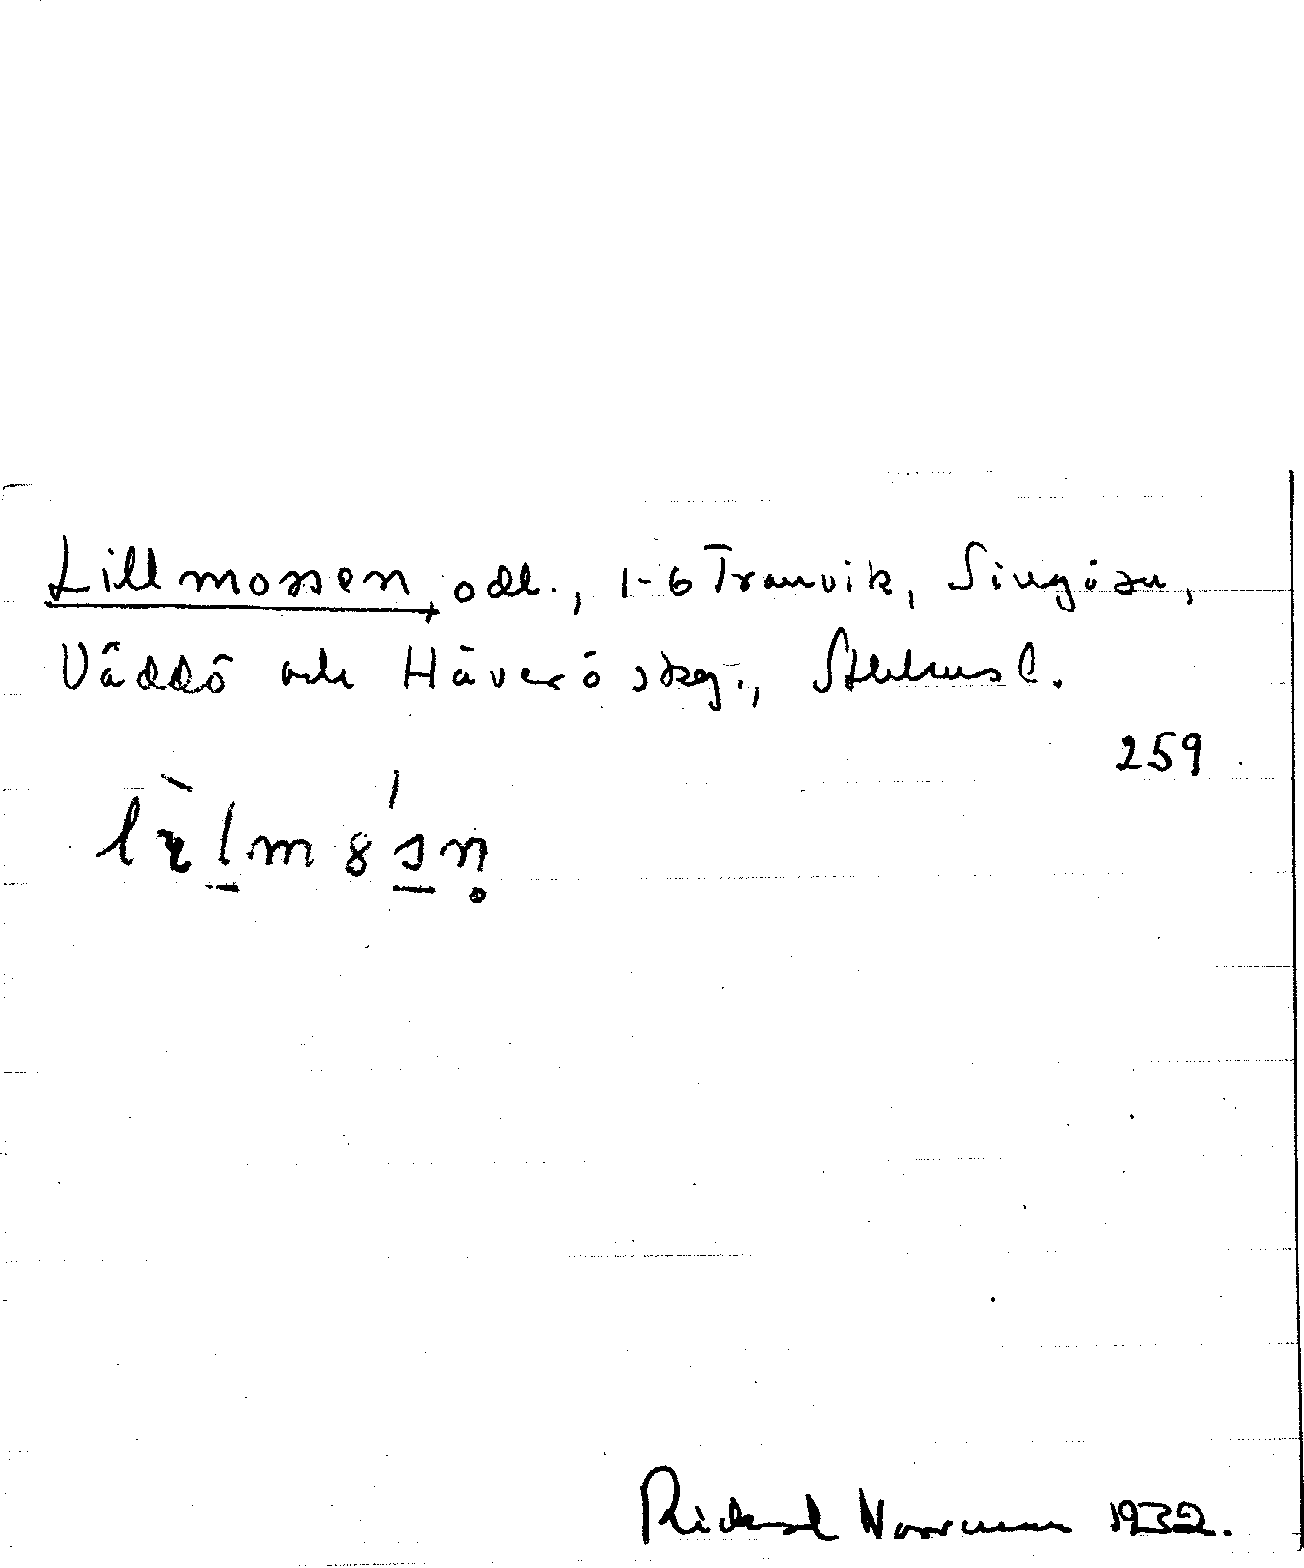 Lillmossen, odl., 1-6 Tranvik, Singö sn,
Väddö och Häverö skg., Sthlms l.
259
lìlmósn̥
Rickard Norrman 1932.